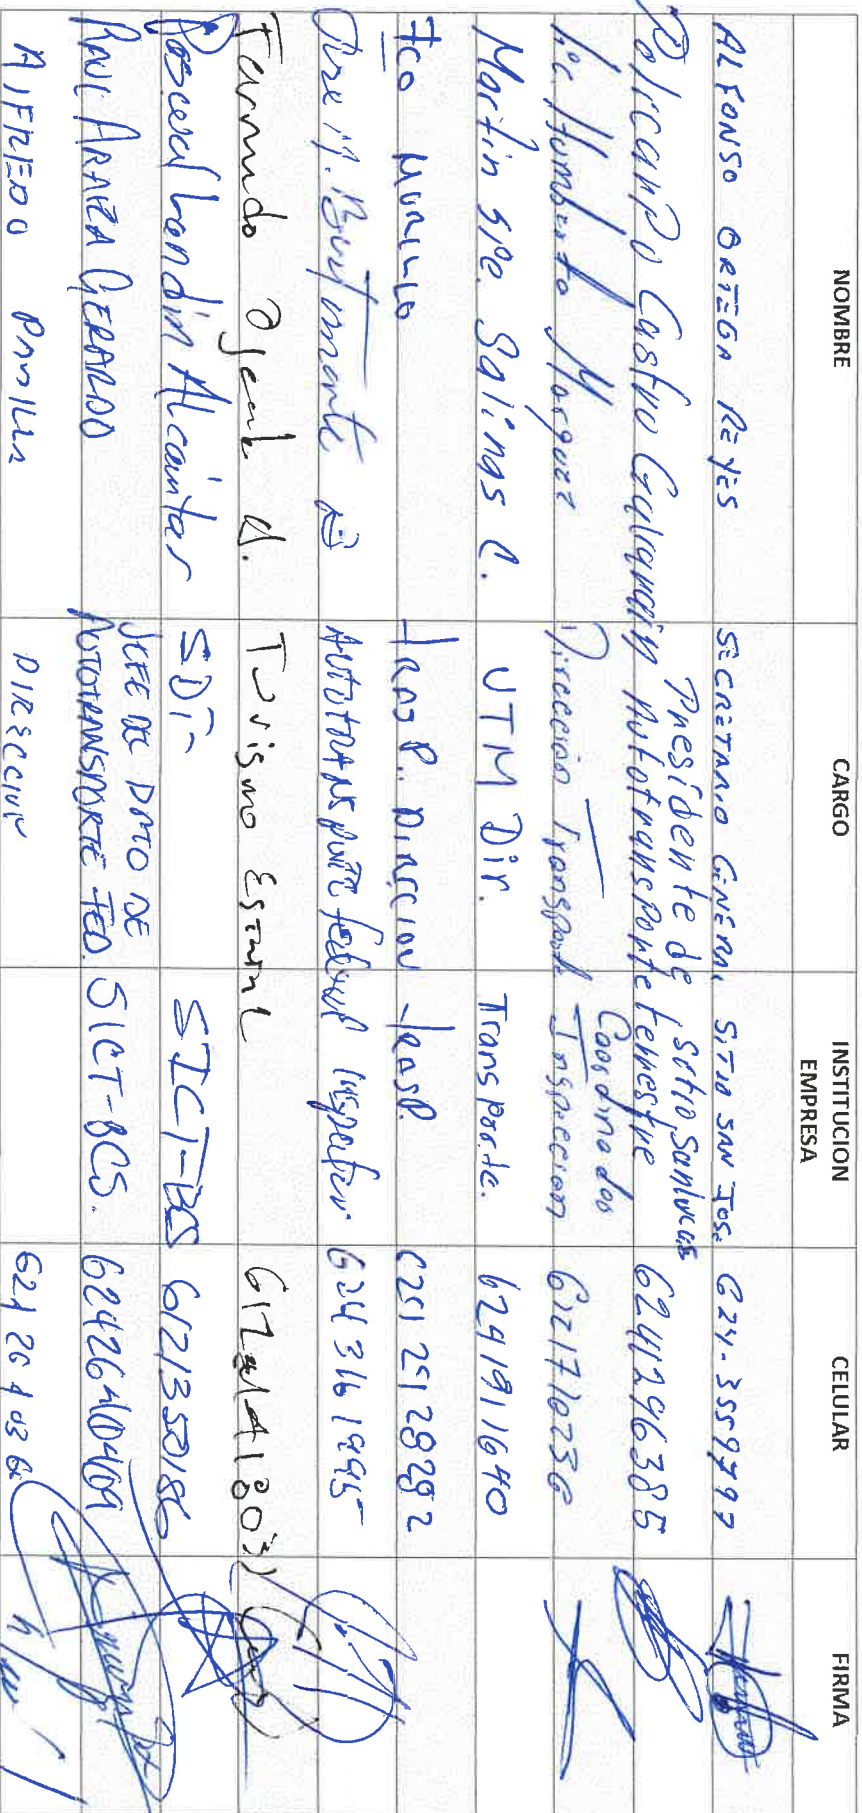 NOMBRE CARGO INSTITUCION EMPRESA CELULAR FIRMA
ALFONSO ORTEGA REYES SECRETARIO GENERAL SITIO SAN JOSE 624-3559797
Policarpo Castro Presidente de Sitio San Lucas Autotransporte terrestre 6241296385
Lic. Humberto Marquez Dirección Transporte Coordinador Inspeccion 6121710236
Martin Gpe. Salinas C. UTM Dir. Transporte. 6241911640
Fco MURILLO Transp. Direccion Transp.
Jose M. Bustamante AUTOTRANSPORTE federal Inspector 624 3161995
Fernando Turismo Estatal
Landin Alcantar SDT SICT-BCS 6121350186
RAUL ARAIZA GERARDO JEFE DE DPTO DE AUTOTRANSPORTE FED. SICT-BCS. 6242640469
AlFREDO DIRECCION